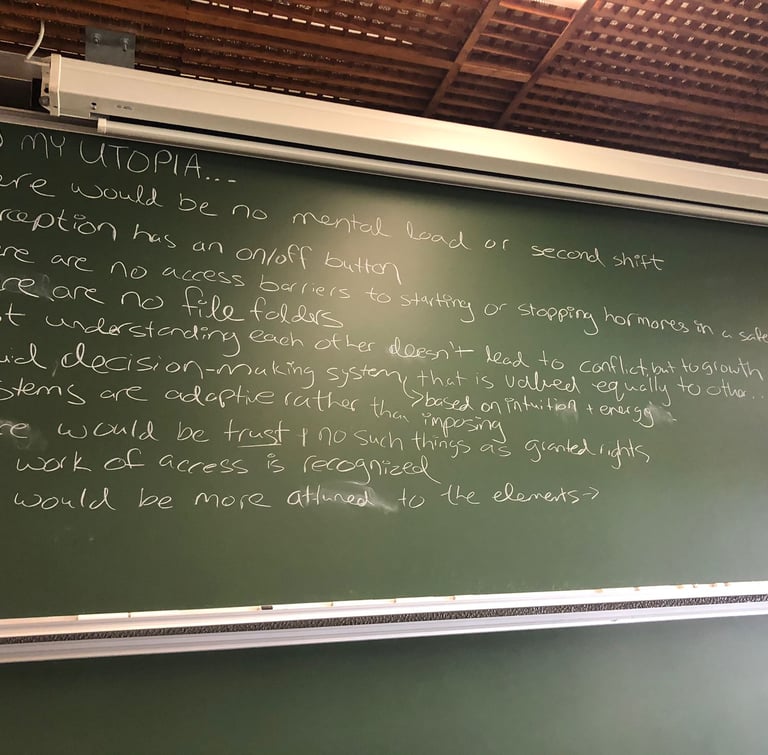 MY UTOPIA...
ere would be no mental load or second shift
rception has an on/off button
re are no access barriers to starting or stopping hormones in a safe
re are no file folders
t understanding each other doesn't lead to conflict, but to growth
uid decision-making system, that is valued equally to other...
>based on intuition + energy
stems are adaptive rather than imposing
re would be trust + no such things as granted rights
work of access is recognized
would be more attuned to the elements →